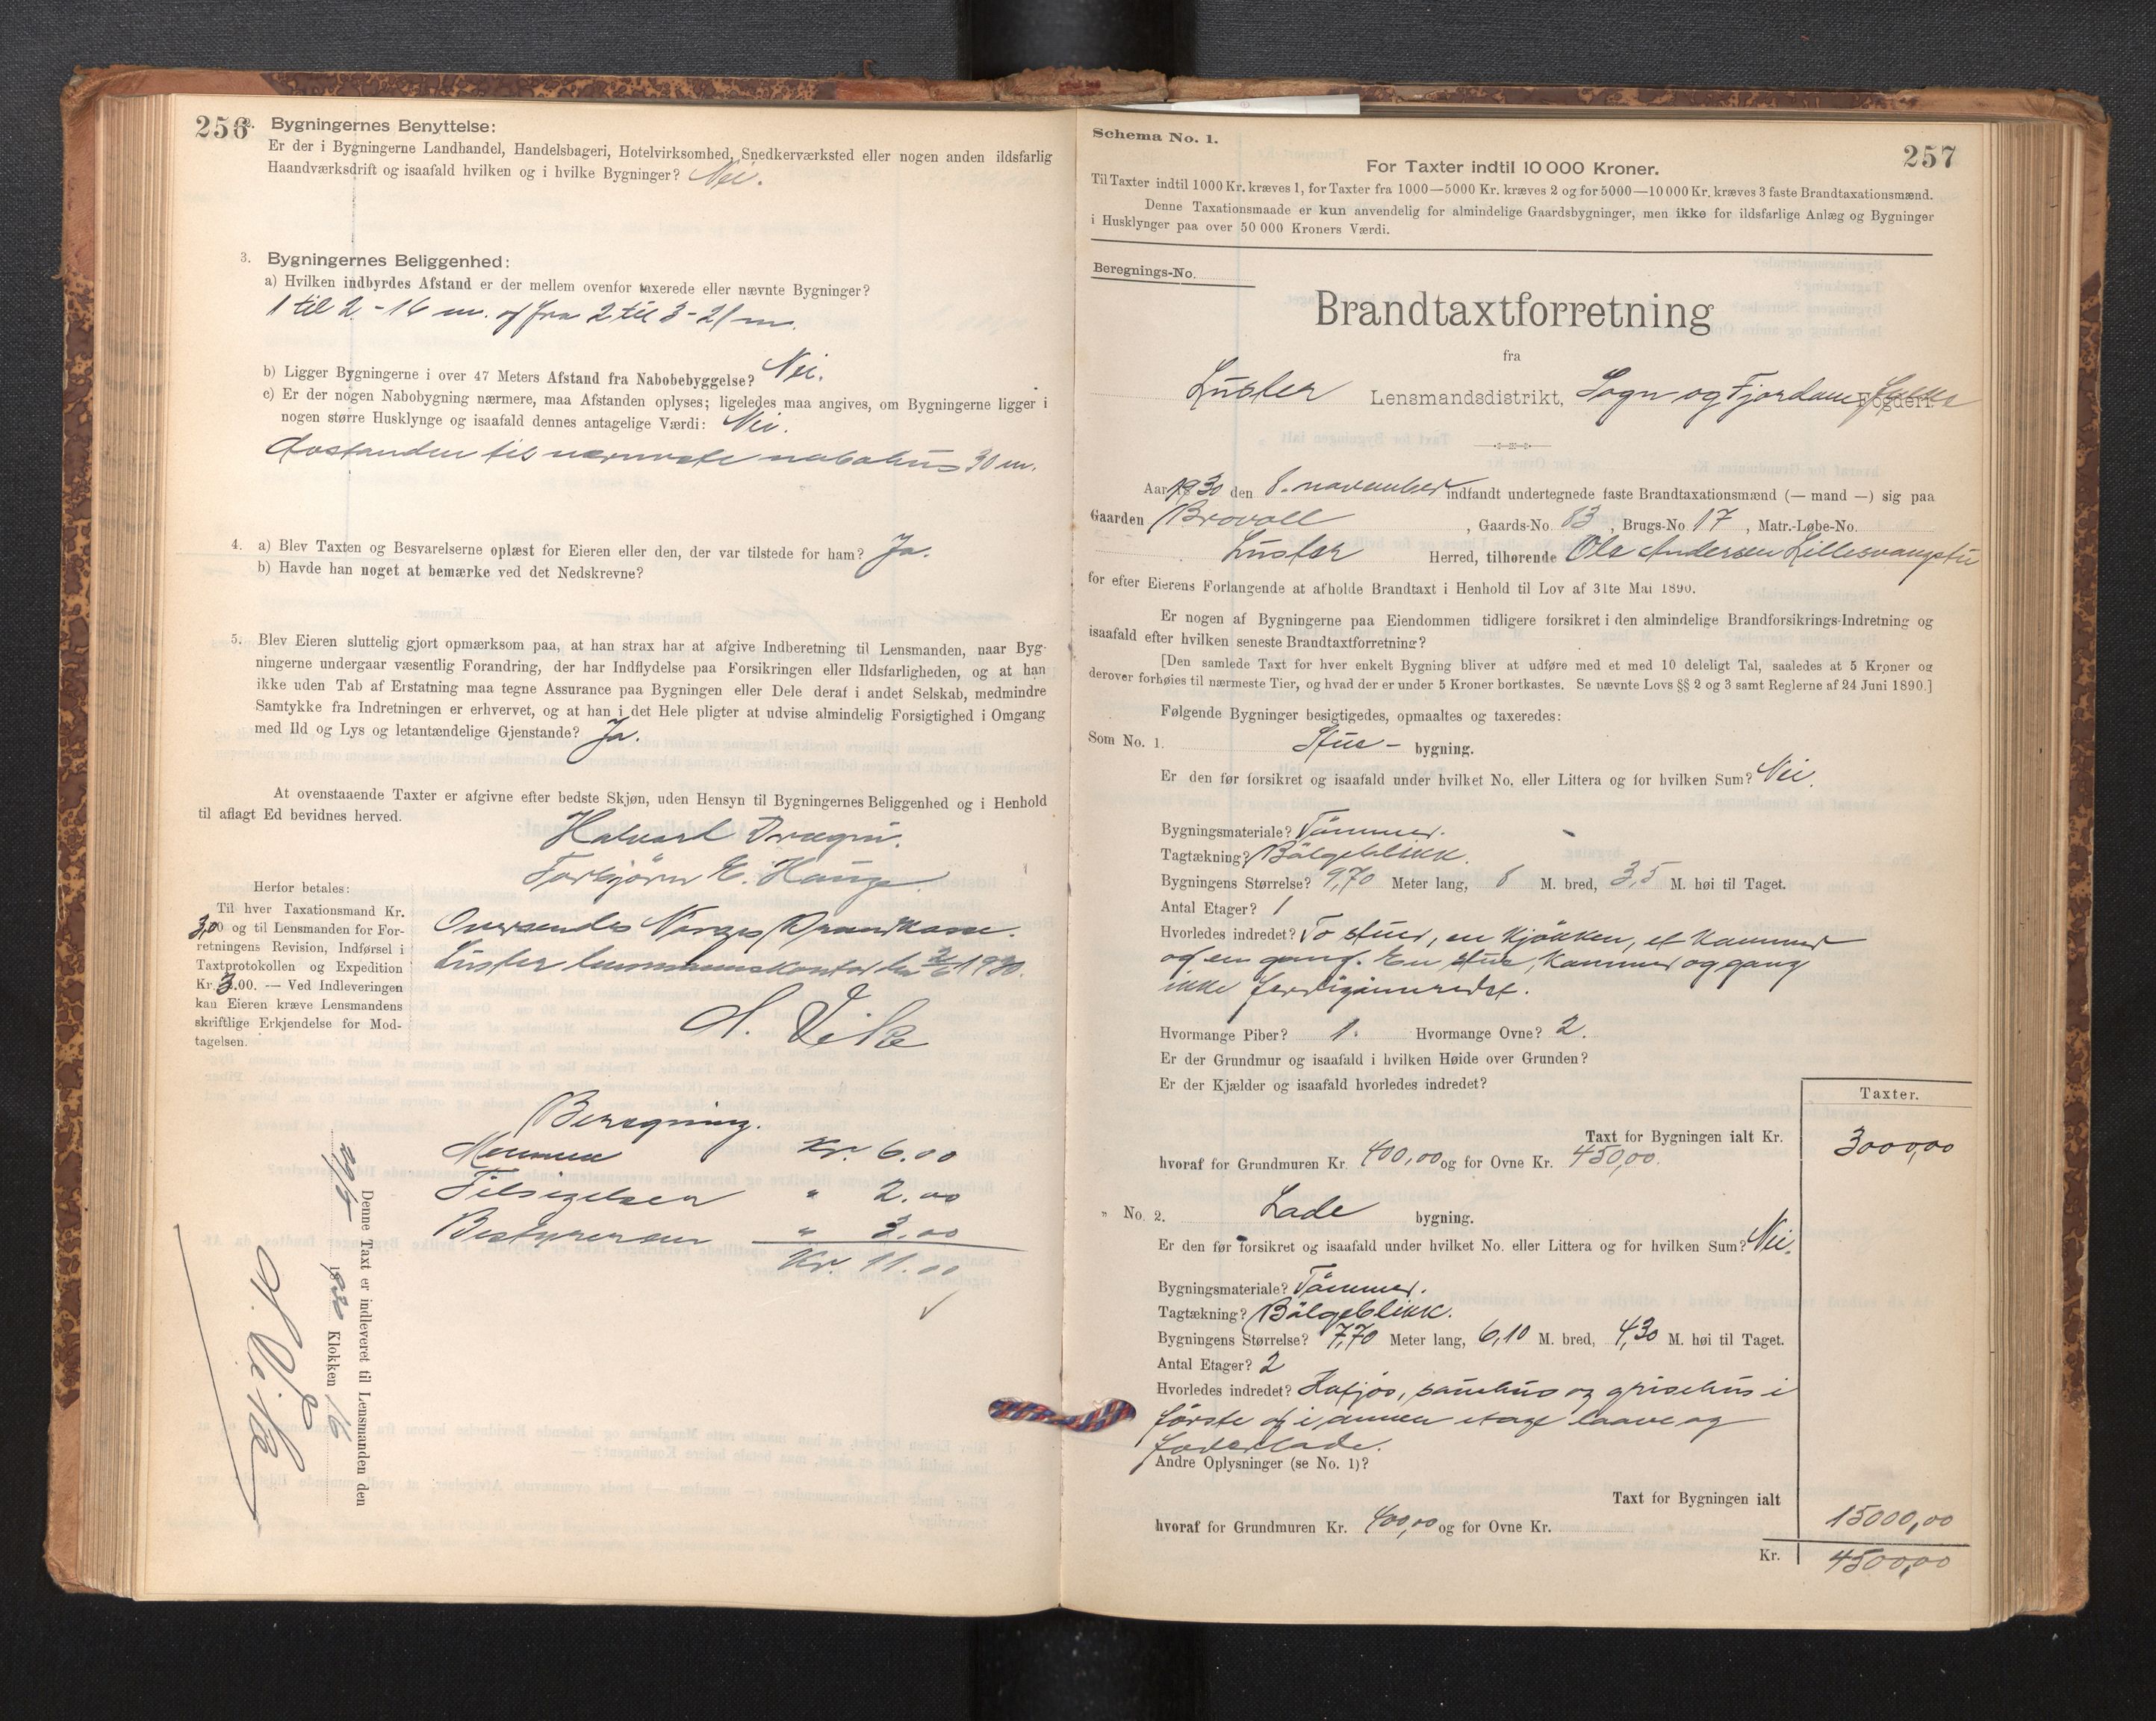 256
2. Bygningernes Benyttelse:
Er der i Bygningerne Landhandel, Handelsbageri, Hotelvirksomhed, Snedkerværksted eller nogen anden ildsfarlig
Haandværksdrift og isaafald hvilken og i hvilke Bygninger? Nei.
3. Bygningernes Beliggenhed:
a) Hvilken indbyrdes Afstand er der mellem ovenfor taxerede eller nævnte Bygninger?
1 til 2 - 16 m. og fra 2 til 3 - 21 m.
b) Ligger Bygningerne i over 47 Meters Afstand fra Nabobebyggelse? Nei.
c) Er der nogen Nabobygning nærmere, maa Afstanden oplyses; ligeledes maa angives, om Bygningerne ligger i
nogen større Husklynge og isaafald dennes antagelige Værdi: Nei.
Avstanden til nærmeste nabohus 30 m.
4. a) Blev Taxten og Besvarelserne oplæst for Eieren eller den, der var tilstede for ham? Ja.
b) Havde han noget at bemærke ved det Nedskrevne?
5. Blev Eieren sluttelig gjort opmærksom paa, at han strax har at afgive Indberetning til Lensmanden, naar Byg-
ningerne undergaar væsentlig Forandring, der har Indflydelse paa Forsikringen eller Ildsfarligheden, og at han
ikke uden Tab af Erstatning maa tegne Assurance paa Bygningen eller Dele deraf i andet Selskab, medmindre
Samtykke fra Indretningen er erhvervet, og at han i det Hele pligter at udvise almindelig Forsigtighed i Omgang
med Ild og Lys og letantændelige Gjenstande? Ja.
At ovenstaaende Taxter er afgivne efter bedste Skjøn, uden Hensyn til Bygningernes Beliggenhed og i Henhold
til aflagt Ed bevidnes herved.
Halvard Drægni.
Torbjørn E. Hauge
Herfor betales:
Til hver Taxationsmand Kr.
3,00 og til Lensmanden for For-
retningens Revision, Indførsel i
Taxtprotokollen og Expedition
Kr. 3.00. — Ved Indleveringen
kan Eieren kræve Lensmandens
skriftlige Erkjendelse for Mod-
tagelsen.
Oversendes Norges Brannkasse.
Luster lensmannskontor den 1930.
Beregning.
Mennene Kr. 6.00
Tilsigelsen " 2.00
Bestyreren " 3.00
Kr. 11.00
Denne Taxt er indleveret til Lensmanden den
1930 Klokken 16
257
Schema No. 1.
For Taxter indtil 10 000 Kroner.
Til Taxter indtil 1000 Kr. kræves 1, for Taxter fra 1000—5000 Kr. kræves 2 og for 5000—10 000 Kr. kræves 3 faste Brandtaxationsmænd.
Denne Taxationsmaade er kun anvendelig for almindelige Gaardsbygninger, men ikke for ildsfarlige Anlæg og Bygninger
i Husklynger paa over 50 000 Kroners Værdi.
Beregnings-No.
Brandtaxtforretning
fra
Luster Lensmandsdistrikt, Sogn og Fjordane Fylke Fogderi.
Aar 1930 den 8. november indfandt undertegnede faste Brandtaxationsmænd (— mand —) sig paa
Gaarden Brovoll, Gaards-No. 83, Brugs-No 17, Matr.-Løbe-No.
Luster Herred, tilhørende Ole Andersen Lillesvangstu
for efter Eierens Forlangende at afholde Brandtaxt i Henhold til Lov af 31te Mai 1890.
Er nogen af Bygningerne paa Eiendommen tidligere forsikret i den almindelige Brandforsikrings-Indretning og
isaafald efter hvilken seneste Brandtaxtforretning?
[Den samlede Taxt for hver enkelt Bygning bliver at udføre med et med 10 deleligt Tal, saaledes at 5 Kroner og
derover forhøies til nærmeste Tier, og hvad der er under 5 Kroner bortkastes. Se nævnte Lovs §§ 2 og 3 samt Reglerne af 24 Juni 1890.]
Følgende Bygninger besigtigedes, opmaaltes og taxeredes:
Som No. 1. Stue- bygning.
Er den før forsikret og isaafald under hvilket No. eller Littera og for hvilken Sum? Nei.
Bygningsmateriale? Tømmer.
Tagtækning? Bølgeblikk.
Bygningens Størrelse? 9,70 Meter lang, 8 M. bred, 3,5 M. høi til Taget.
Antal Etager? 1
Hvorledes indredet? To stuer, en kjøkken, et kammer
og en gang. En stue, kammer og gang
ikke ferdiginnredet.
Hvormange Piber? 1. Hvormange Ovne? 2.
Er der Grundmur og isaafald i hvilken Høide over Grunden?
Er der Kjælder og isaafald hvorledes indredet?
Taxter.
Taxt for Bygningen ialt Kr. 3000,00
hvoraf for Grundmuren Kr. 400,00 og for Ovne Kr. 450,00.
" No. 2. Lade bygning.
Er den før forsikret og isaafald under hvilket No. eller Littera og for hvilken Sum? Nei.
Bygningsmateriale? Tømmer.
Tagtækning? Bølgeblikk.
Bygningens Størrelse? 7,70 Meter lang, 6,10 M. bred, 4,30 M. høi til Taget.
Antal Etager? 2
Hvorledes indredet? og grisehus i
første og i annen etage laave og
foderlade.
Andre Oplysninger (se No. 1)?
Taxt for Bygningen ialt 15000,00
hvoraf for Grundmuren Kr. 400,00 og for Ovne Kr.
Kr. 4500,00